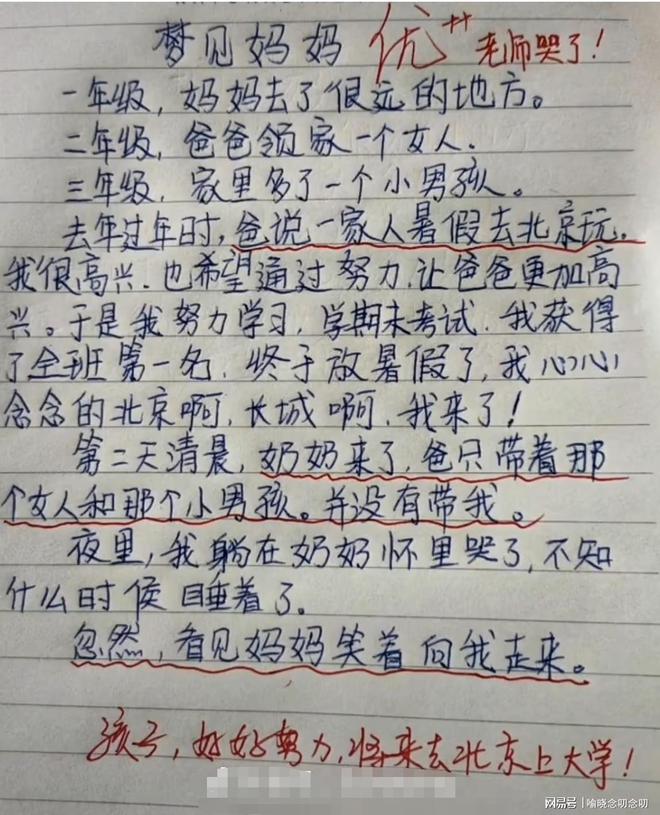 梦见妈妈 优++ 老师哭了!
一年级，妈妈去了很远的地方。
二年级，爸爸领家一个女人.
三年级，家里多了一个小男孩。
去年过年时，爸说一家人暑假去北京玩，
我很高兴.也希望通过努力，让爸爸更加高
兴。于是我努力学习，学期末考试.我获得
了全班第一名.终于放暑假了，我心心
念念的北京啊，长城啊，我来了!
第二天清晨，奶奶来了，爸只带着那
个女人和那个小男孩。并没有带我。
夜里，我躺在奶奶怀里哭了，不知
什么时候睡着了。
忽然，看见妈妈笑着向我走来。
孩子，好好努力，将来去北京上大学!
网易号 | 喻晓念叨念叨